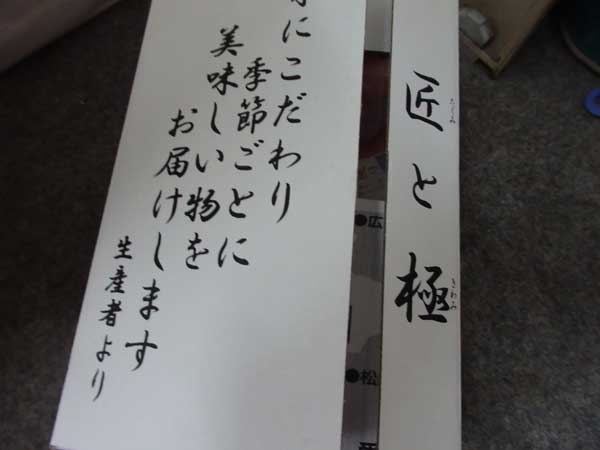 匠と極
たくみ
きわみ
にこだわり
季節ごとに
美味しい物を
お届けします
生産者より
●広
●松